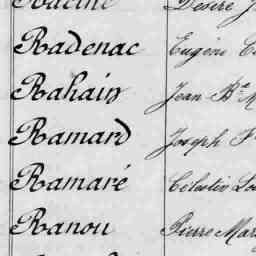 Racine Désiré
Radenac Eugène
Rahain Jean Bte M
Ramard Joseph F
Ramaré Célestin Lou
Ranou Pierre Mar